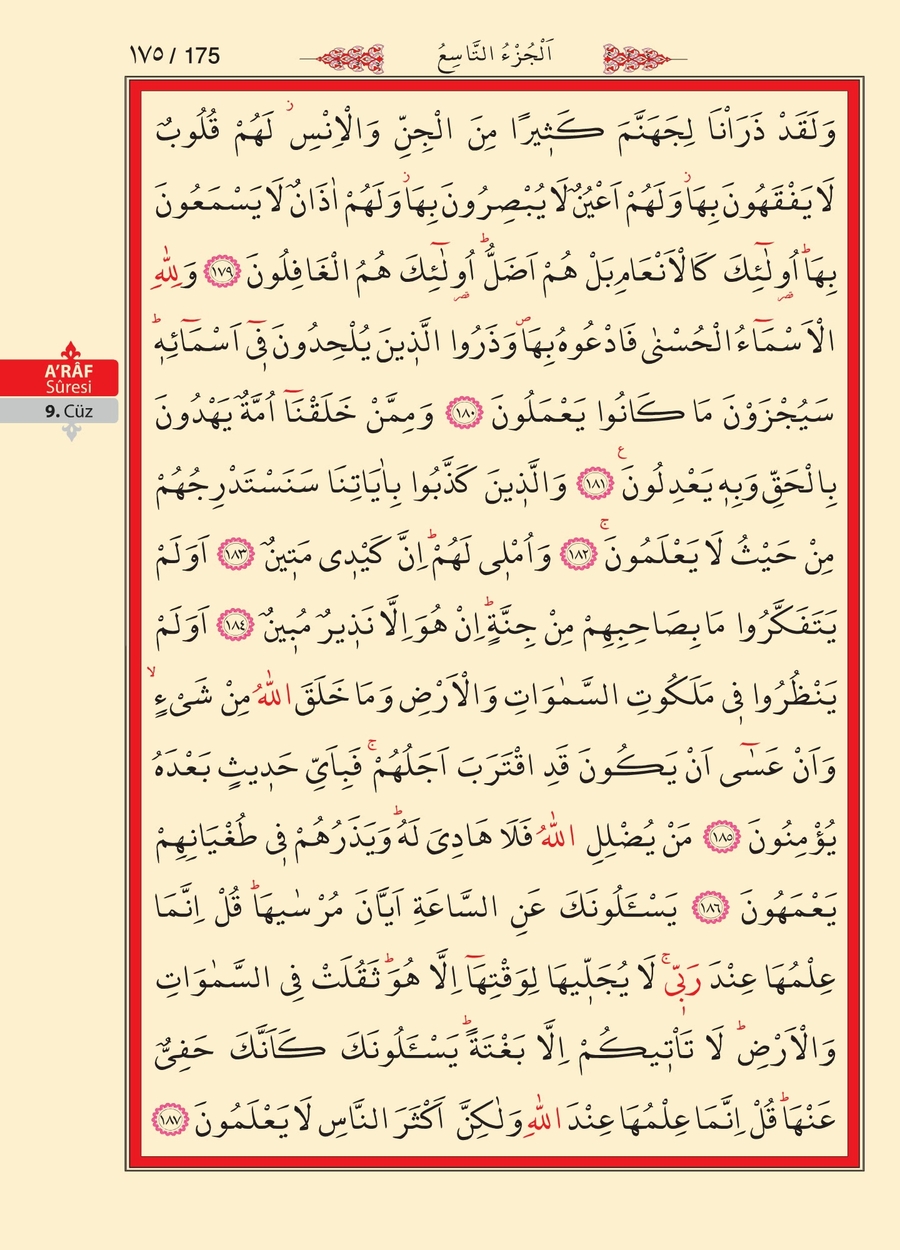 ١٧٥ / 175
اَلْجُزْءُ التَّاسِعُ
وَلَقَدْ ذَرَاْنَا لِجَهَنَّمَ كَثٖيرًا مِنَ الْجِنِّ وَالْاِنْسِۘ لَهُمْ قُلُوبٌ
لَا يَفْقَهُونَ بِهَاۘ وَلَهُمْ اَعْيُنٌ لَا يُبْصِرُونَ بِهَاۘ وَلَهُمْ اٰذَانٌ لَا يَسْمَعُونَ
بِهَاؕ اُولٰٓئِكَ كَالْاَنْعَامِ بَلْ هُمْ اَضَلُّؕ اُولٰٓئِكَ هُمُ الْغَافِلُونَ ﴿١٧٩﴾ وَلِلّٰهِ
الْاَسْمَٓاءُ الْحُسْنٰى فَادْعُوهُ بِهَا وَذَرُوا الَّذٖينَ يُلْحِدُونَ فٖٓى اَسْمَٓائِهٖؕ
سَيُجْزَوْنَ مَا كَانُوا يَعْمَلُونَ ﴿١٨٠﴾ وَمِمَّنْ خَلَقْنَٓا اُمَّةٌ يَهْدُونَ
بِالْحَقِّ وَبِهٖ يَعْدِلُونَ ﴿١٨١﴾ وَالَّذٖينَ كَذَّبُوا بِاٰيَاتِنَا سَنَسْتَدْرِجُهُمْ
مِنْ حَيْثُ لَا يَعْلَمُونَۚ ﴿١٨٢﴾ وَاُمْلٖى لَهُمْؕ اِنَّ كَيْدٖى مَتٖينٌ ﴿١٨٣﴾ اَوَلَمْ
يَتَفَكَّرُوا مَا بِصَاحِبِهِمْ مِنْ جِنَّةٍؕ اِنْ هُوَ اِلَّا نَذٖيرٌ مُبٖينٌ ﴿١٨٤﴾ اَوَلَمْ
يَنْظُرُوا فٖى مَلَكُوتِ السَّمٰوَاتِ وَالْاَرْضِ وَمَا خَلَقَ اللّٰهُ مِنْ شَىْءٍۙ
وَاَنْ عَسٰٓى اَنْ يَكُونَ قَدِ اقْتَرَبَ اَجَلُهُمْۚ فَبِاَىِّ حَدٖيثٍ بَعْدَهُ
يُؤْمِنُونَ ﴿١٨٥﴾ مَنْ يُضْلِلِ اللّٰهُ فَلَا هَادِىَ لَهُؕ وَيَذَرُهُمْ فٖى طُغْيَانِهِمْ
يَعْمَهُونَ ﴿١٨٦﴾ يَسْـَٔلُونَكَ عَنِ السَّاعَةِ اَيَّانَ مُرْسٰيهَاؕ قُلْ اِنَّمَا
عِلْمُهَا عِنْدَ رَبّٖىۚ لَا يُجَلّٖيهَا لِوَقْتِهَٓا اِلَّا هُوَؕ ثَقُلَتْ فِى السَّمٰوَاتِ
وَالْاَرْضِؕ لَا تَاْتٖيكُمْ اِلَّا بَغْتَةًؕ يَسْـَٔلُونَكَ كَاَنَّكَ حَفِىٌّ
عَنْهَاؕ قُلْ اِنَّمَا عِلْمُهَا عِنْدَ اللّٰهِ وَلٰكِنَّ اَكْثَرَ النَّاسِ لَا يَعْلَمُونَ ﴿١٨٧﴾
A'RÂF
Sûresi
9. Cüz